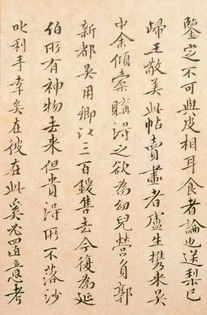 鑒定不可與皮相耳食者論也送梨已
歸王敬美此帖賣畫者盧生攜來吳
中余傾橐購得之欲為幼兒營負郭
新都吳用卿以三百鍰售去今復為延
伯所有神物去來但貴得所不落沙
叱利手幸矣在彼在此奚足置意考